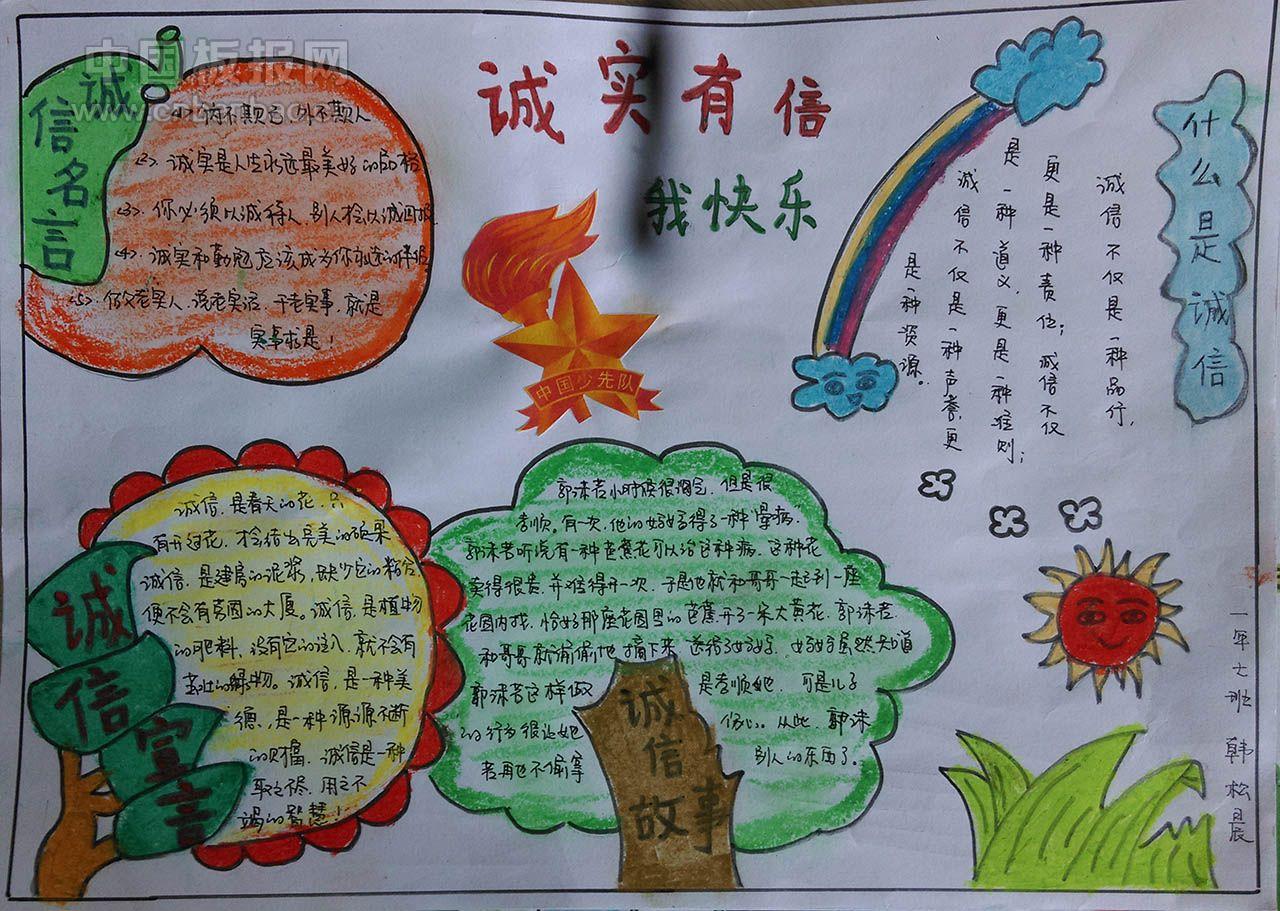 中国板报网
诚实有信
我快乐
诚信名言
<1> 内不欺己 外不欺人
<2> 诚实是人生永远最美好的品格
<3> 你必须以诚待人，别人才会以诚回报
<4> 诚实和勤勉应该成为你永远的伴侣
<5> 做老实人，说老实话，干老实事，就是
实事求是！
中国少先队
什么是诚信
诚信不仅是一种品行，
更是一种责任；诚信不仅
是一种道义，更是一种准则；
诚信不仅是一种声誉，更
是一种资源。
诚信宣言
诚信，是春天的花，只
有开过花，才会结出完美的硕果
诚信，是建房的泥浆，缺少它的粘合，
便不会有稳固的大厦。诚信，是植物
的肥料，没有它的注入，就不会有
茁壮的绿物。诚信，是一种美
德，是一种源源不断
的财富，诚信是一种
取之不尽，用之不
竭的智慧！
诚信故事
郭沫若小时候很淘气，但是很
孝顺。有一次，他的妈妈得了一种晕病，
郭沫若听说有一种芭蕉花可以治这种病，这种花
卖得很贵，并难得开一次，于是他就和哥哥一起到一座
花园内找，恰好那座花园里的芭蕉开了一朵大黄花，郭沫若
和哥哥就偷偷地摘下来 送给了妈妈，妈妈虽然知道
郭沫若这样做 是孝顺她，可是儿子
的行为很让她 伤心。从此，郭沫
若再也不偷拿 别人的东西了。
一年七班 韩松晨